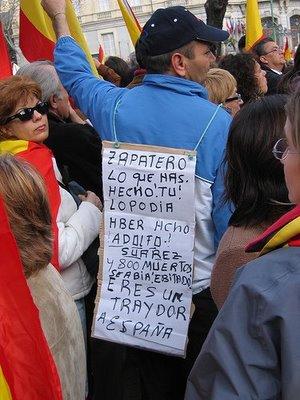 ZAPATERO
LO QUE HAS.
HECHO! TU!
LO PODIA
HBER HCHO
ADOLFO.!
SUAREZ
Y 800 MUERTOS
SEABIA EBITADO
ERES UN
TRAYDOR
A ESPAÑA